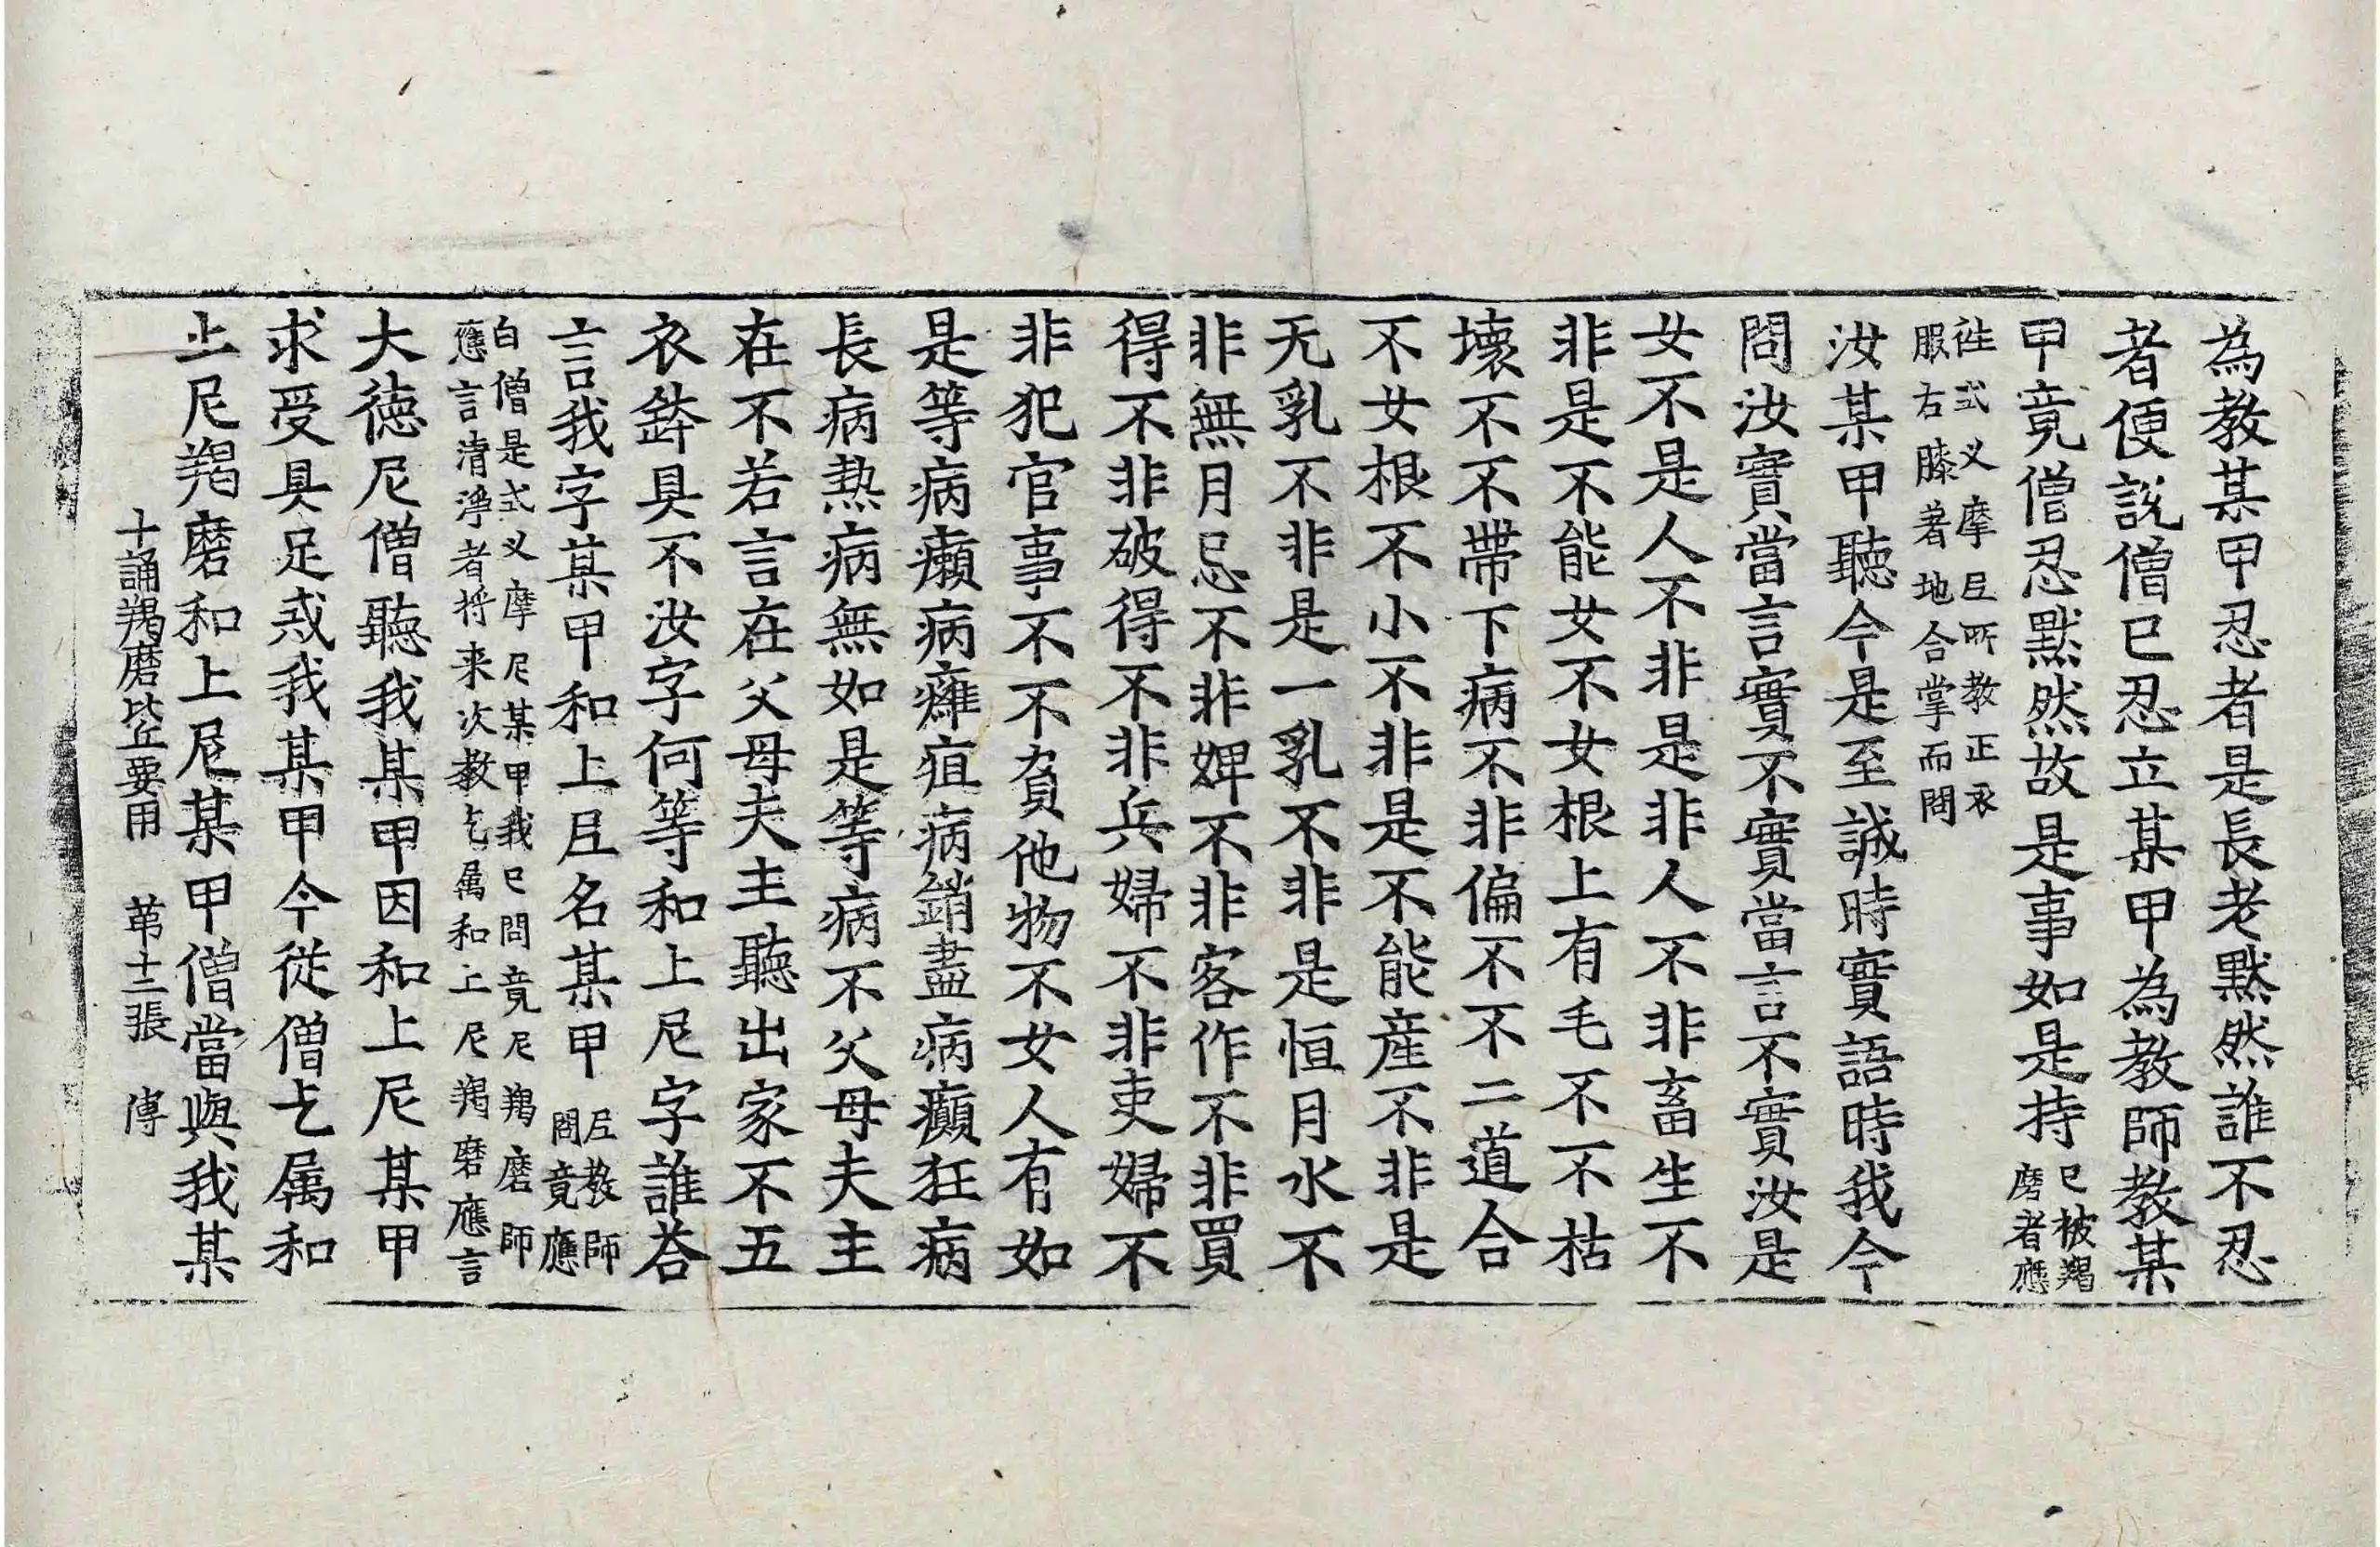 為教某甲忍者是長老默然誰不忍
者便説僧已忍立某甲為教師教某
甲竟僧忍默然故是事如是持已被羯
磨者應
往式叉摩𡰱所教正衣
服右膝著地合掌而問
汝某甲聽今是至誠時實語時我今
問汝實當言實不實當言不實汝是
女不是人不非是非人不非畜生不
非是不能女不女根上有毛不不枯
壞不不帶下病不非偏不不二道合
不女根不小不非是不能産不非是
无乳不非是一乳不非是恒月水不
非無月忌不非婢不非客作不非買
得不非破得不非兵婦不非吏婦不
非犯官事不不負他物不女人有如
是等病癩病癰疽病銷盡病癲狂病
長病熱病無如是等病不父母夫主
在不若言在父母夫主聽出家不五
衣鉢具不汝字何等和上尼字誰荅
言我字某甲和上𡰱名某甲𡰱教師
問竟應
白僧是式叉摩尼某甲我已問竟尼羯磨師
應言清淨者將来次教乞属和上尼羯磨應言
大德尼僧聽我某甲因和上尼某甲
求受具足戒我某甲今従僧乞属和
上尼羯磨和上尼某甲僧當與我某
十誦羯磨比丘要用　苐十三張　傅